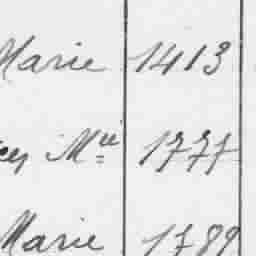 Marie 1413
cey Mie 1777
Marie 1789